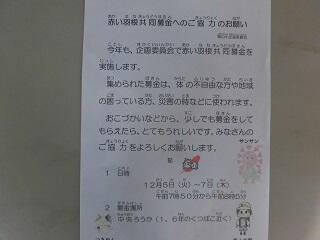 赤い羽根共同募金へのご協力のお願い
今年も、企画委員会で赤い羽根共同募金を
実施します。
集められた募金は、体の不自由な方や地域
の困っている方、災害の時などに使われます。
おこづかいなどから、少しでも募金をして
もらえたら、とてもうれしいです。みなさんの
ご協力をよろしくお願いします。
記
サンサン
1 日時
12月5日（火）〜7日（木）
午前7時50分から午前8時05分
2 募金場所
中央ろうか（1、6年のくつばこ近く）